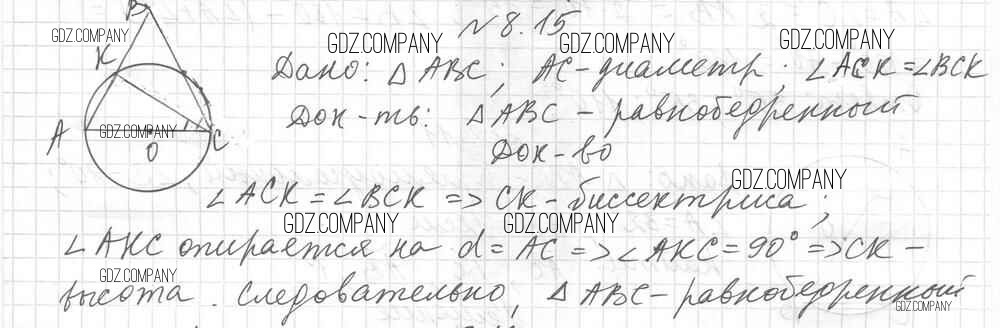 №8.15
Дано: △ABC; AC-диаметр; ∠ACK=∠BCK
Док-ть: △ABC - равнобедренный
Док-во
∠ACK=∠BCK => CK-биссектриса;
∠AKC опирается на d=AC => ∠AKC=90° => CK-
высота. Следовательно, △ABC-равнобедренный
B
K
A
O
C
GDZ.COMPANY
GDZ.COMPANY
GDZ.COMPANY
GDZ.COMPANY
GDZ.COMPANY
GDZ.COMPANY
GDZ.COMPANY
GDZ.COMPANY
GDZ.COMPANY
GDZ.COMPANY